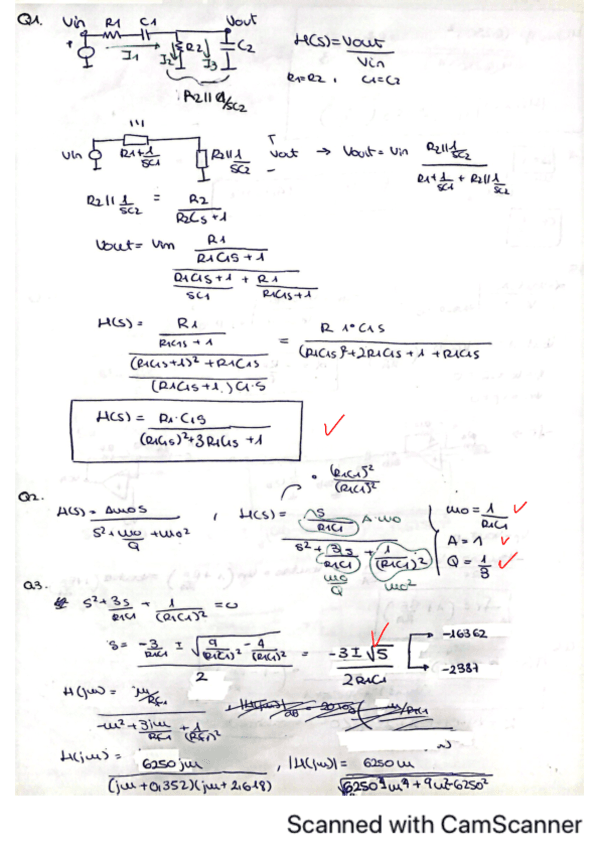 Q1. Vin R1 C1 Vout
+ I1 I2 R2 I3 C2
R2 || 1/SC2
H(s) = Vout / Vin
R1=R2, C1=C2
Vin R1+1/SC1 R2||1/SC2 Vout → Vout = Vin (R2||1/SC2) / (R1+1/SC1 + R2||1/SC2)
R2||1/SC2 = R2 / (R2Cs+1)
Vout = Vin (R1 / (R1C1S+1)) / ((R1C1S+1)/SC1 + R1/(R1C1S+1))
H(s) = (R1 / (R1C1S+1)) / (((R1C1S+1)²+R1C1S) / ((R1C1S+1)C1·S)) = R1·C1S / ((R1C1S)²+2R1C1S+1+R1C1S)
H(s) = R1·C1S / ((R1C1S)²+3R1C1S+1) ✓
Q2. · (R1C1)² / (R1C1)²
H(s) = Aω0S / (S²+ω0/Q+ω0²), H(s) = (S/R1C1) A·ω0 / (S²+3S/R1C1+1/(R1C1)²)
ω0/Q ω0²
ω0 = 1/R1C1 ✓
A = 1 ✓
Q = 1/3 ✓
Q3.
S²+3S/R1C1+1/(R1C1)² = 0
S = (-3/R1C1 ± √(9/(R1C1)² - 4/(R1C1)²)) / 2 = (-3±√5) / 2R1C1 ✓ → -16362
→ -2387
H(jω) = (jω/R1C1) / (-ω²+3jω/R1C1+1/(R1C1)²)
H(jω) = 6250jω / ((jω+0,352)(jω+2,618)), |H(jω)| = 6250ω
Scanned with CamScanner